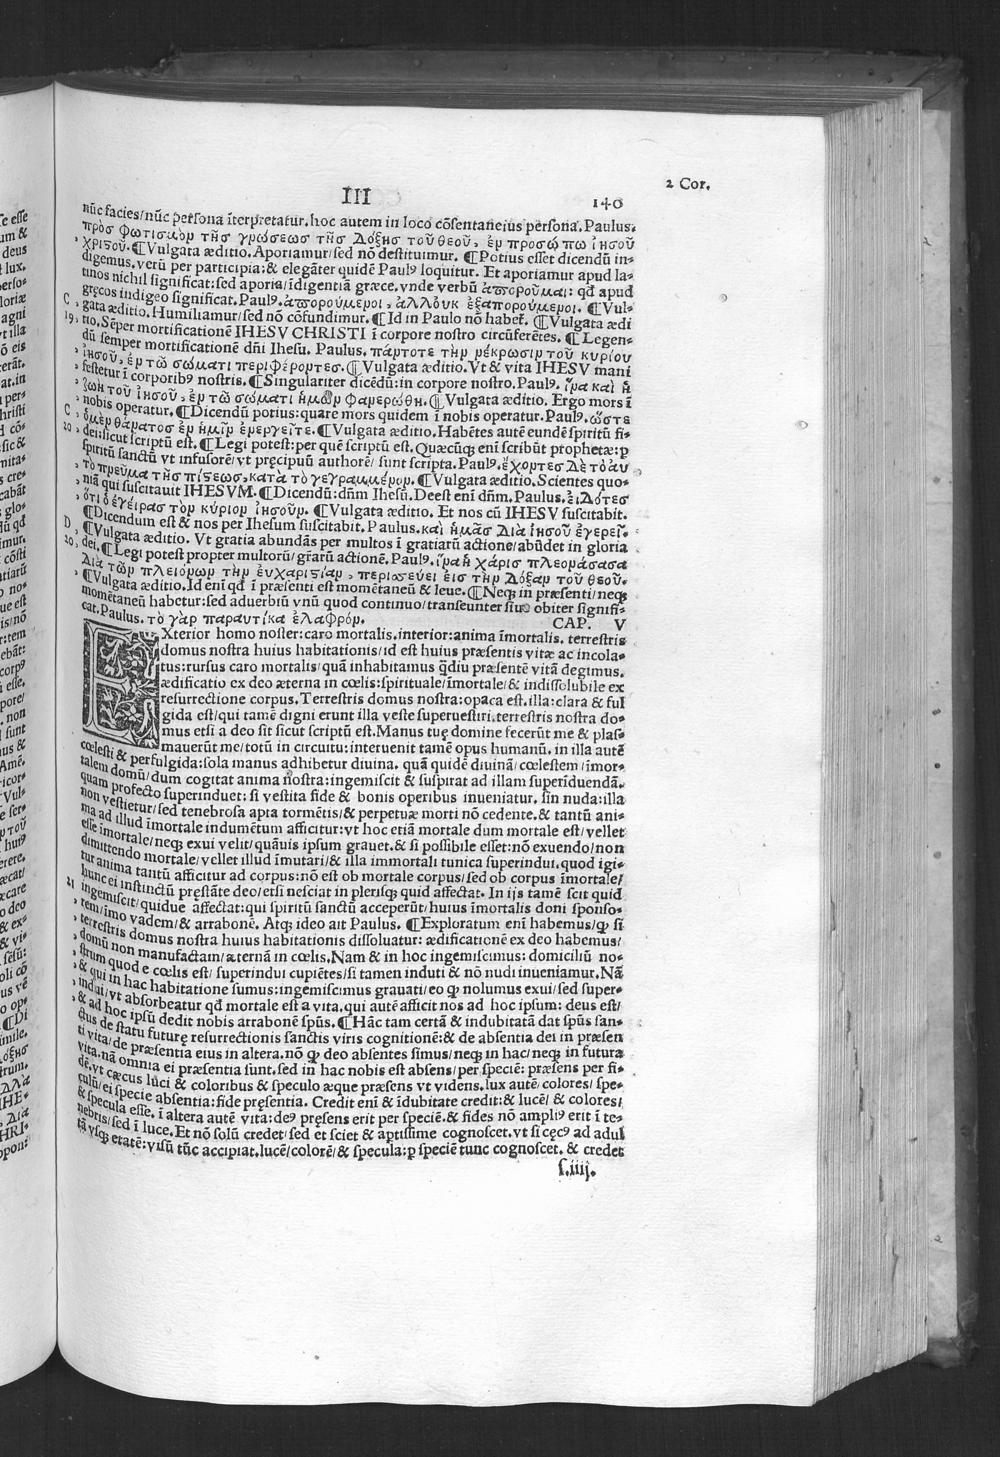 2 Cor.
III
140
nūc facies/nūc persona īterpretatur. hoc autem in loco cōsentaneius persona. Paulus.
πρὸς φωτισμὸν τῆς γνώσεως τῆς δόξης τοῦ θεοῦ, ἐν προσώπω ἰησοῦ
χριστοῦ. ¶Vulgata æditio. Aporiamur/sed nō destituimur. ¶Potius esset dicendū in-
digemus. verū per participia: & elegāter quidē Paulꝰ loquitur. Et aporiamur apud la-
tinos nichil significat: sed aporia/īdigentiā græce. vnde verbū ἀπορούμαι: qđ apud
gręcos indigeo significat. Paulꝰ. ἀπορούμενοι, ἀλλ οὐκ ἐξαπορούμενοι. ¶Vul-
C gata æditio. Humiliamur/sed nō cōfundimur. ¶Id in Paulo nō habet. ¶Vulgata ædi
19 tio. Sēper mortificationē IHESV CHRISTI ī corpore nostro circūferētes. ¶Legen-
dū semper mortificationē dñi Ihesu. Paulus. πάντοτε τὴν νέκρωσιν τοῦ κυρίου
ἰησοῦ, ἐν τῶ σώματι περιφέροντες. ¶Vulgata æditio. Vt & vita IHESV mani
festetur ī corporibꝰ nostris. ¶Singulariter dicēdū: in corpore nostro. Paulꝰ. ἵνα καὶ ἡ
ζωὴ τοῦ ἰησοῦ, ἐν τῶ σώματι ἡμῶν φανερώθη. ¶Vulgata æditio. Ergo mors ī
C nobis operatur. ¶Dicendū potius: quare mors quidem ī nobis operatur. Paulꝰ. ὥστε
20 ὁ μὲν θάνατος ἐν ἡμῖν ἐνεργεῖτε. ¶Vulgata æditio. Habētes autē eundē spiritū fi-
dei: sicut scriptū est. ¶Legi potest: per quē scriptū est. Quæcūqꝫ enī scribūt prophetæ: p
spiritū sanctū vt infusorē/vt pręcipuū authorē/ sunt scripta. Paulꝰ. ἔχοντες δὲ τὸ αυ
τὸ πνεῦμα τῆς πίστεως, κατὰ τὸ γεγραμμένον. ¶Vulgata æditio. Scientes quo-
niā qui suscitauit IHESVM. ¶Dicendū: dñm Ihesū. Deest enī dñm. Paulus. ἐιδότες
ὅτι ὁ ἐγείρας τὸν κύριον ἰησοῦν. ¶Vulgata æditio. Et nos cū IHESV suscitabit.
¶Dicendum est & nos per Ihesum suscitabit. Paulus. καὶ ἡμᾶς διὰ ἰησοῦ ἐγερεῖ.
D ¶Vulgata æditio. Vt gratia abundās per multos ī gratiarū actione/abūdet in gloria
20 dei. ¶Legi potest propter multorū/grārū actionē. Paulꝰ. ἵνα ἡ χάρις πλεονάσασα
διὰ τῶν πλειόνων τὴν ἐυχαριστίαν, περισσεύει ἐις τὴν δόξαν τοῦ θεοῦ.
¶Vulgata æditio. Id enī qđ ī præsenti est momētaneū & leue. ¶Neqꝫ in præsenti/neqꝫ
momētaneū habetur: sed aduerbiū vnū quod continuo/transeunter siue obiter signifi-
cat. Paulus. τὸ γὰρ παραυτίκα ἐλαφρόν.
CAP. V
EXterior homo noster: caro mortalis. interior: anima īmortalis. terrestris
domus nostra huius habitationis/id est huius præsentis vitæ ac incola-
tus: rursus caro mortalis/quā inhabitamus q̄diu præsentē vitā degimus.
ædificatio ex deo æterna in cœlis: spirituale/īmortale/& indissolubile ex
resurrectione corpus. Terrestris domus nostra: opaca est. illa: clara & ful
gida est/qui tamē digni erunt illa veste superuestiri. terrestris nostra do-
mus etsi a deo sit sicut scriptū est. Manus tuę domine fecerūt me & plas-
mauerūt me/totū in circuitu: interuenit tamē opus humanū. in illa autē
cœlesti & perfulgida: sola manus adhibetur diuina. quā quidē diuinā/cœlestem/īmor-
talem domū/dum cogitat anima nostra: ingemiscit & suspirat ad illam superīduendā.
quam profecto superinduet: si vestita fide & bonis operibus inueniatur. sin nuda: illa
non vestietur/sed tenebrosa apta tormētis/& perpetuæ morti nō cedente. & tantū ani-
ma ad illud īmortale indumētum afficitur: vt hoc etiā mortale dum mortale est/vellet
esse īmortale/neqꝫ exui velit/quāuis ipsum grauet. & si possibile esset: nō exuendo/non
dimittendo mortale/vellet illud īmutari/& illa immortali tunica superindui. quod igi-
tur anima tantū afficitur ad corpus: nō est ob mortale corpus/sed ob corpus īmortale/
hunc ei instinctū pręstāte deo/etsi nesciat in plerisqꝫ quid affectat. In ijs tamē scit quid
21 ingemiscit/quidue affectat: qui spiritū sanctū acceperūt/huius īmortalis doni sponso-
rem/īmo vadem/& arrabonē. Atqꝫ ideo ait Paulus. ¶Exploratum enī habemus/ꝙ si
terrestris domus nostra huius habitationis dissoluatur: ædificationē ex deo habemus/
domū non manufactam/æternā in cœlis. Nam & in hoc ingemiscimus: domiciliū no-
strum quod e cœlis est/ superindui cupiētes/si tamen induti & nō nudi inueniamur. Nā
& qui in hac habitatione sumus: ingemiscimus grauati/eo ꝙ nolumus exui/sed super-
indui/vt absorbeatur qđ mortale est a vita. qui autē afficit nos ad hoc ipsum: deus est/
& ad hoc ipsū dedit nobis arrabonē spūs. ¶Hāc tam certā & indubitatā dat spūs san-
ctus de statu futurę resurrectionis sanctis viris cognitionē: & de absentia dei in præsen
ti vita/de præsentia eius in altera. nō ꝙ deo absentes simus/neqꝫ in hac/neqꝫ in futura
vita. nā omnia ei præsentia sunt. sed in hac nobis est absens/per speciē: præsens per fi-
dē. vt cæcus luci & coloribus & speculo æque præsens vt videns. lux autē/colores/spe-
culū/ei specie absentia: fide pręsentia. Credit enī & īdubitate credit: & lucē/& colores/
& specula esse. ī altera autē vita: deꝰ pręsens erit per speciē. & fides nō ampliꝰ erit ī te-
nebris/sed ī luce. Et nō solū credet/sed et sciet & aptissime cognoscet. vt si cęcꝰ ad adul
tā vsqꝫ etatē: visū tūc accipiat. lucē/colorē/& specula: p speciē tunc cognoscet. & credet
s.iiij.